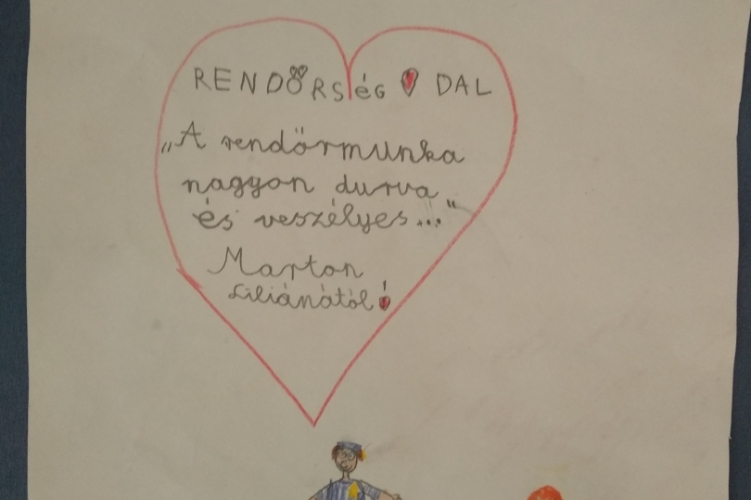 RENDŐRSéG DAL
„A rendőrmunka
nagyon durva
és veszélyes..."
Marton
Liliánától!